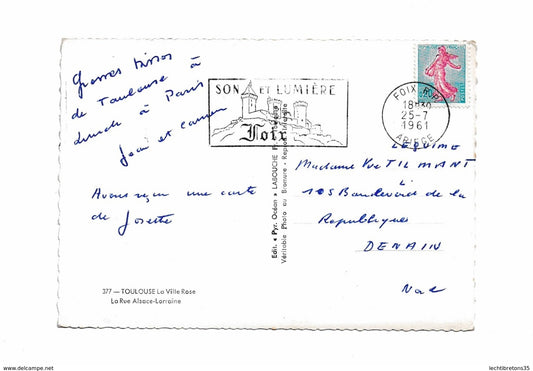 Grosses bises
de Toulouse à
lundi à Paris
Jean et Carmen
Avons reçu une carte
de Josette
377 — TOULOUSE La Ville Rose
La Rue Alsace-Lorraine
SON ET LUMIÈRE
Foix
Edit. « Pyr. Océan » LABOUCHE
Véritable Photo au Bromure - Reproduction
FOIX R.P.
18H30
25-7
1961
ARIEGE
LEQUIME
Madame Vve TILMANT
105 Boulevard de la
République
DENAIN
Nord
www.delcampe.net
lechtibretons35